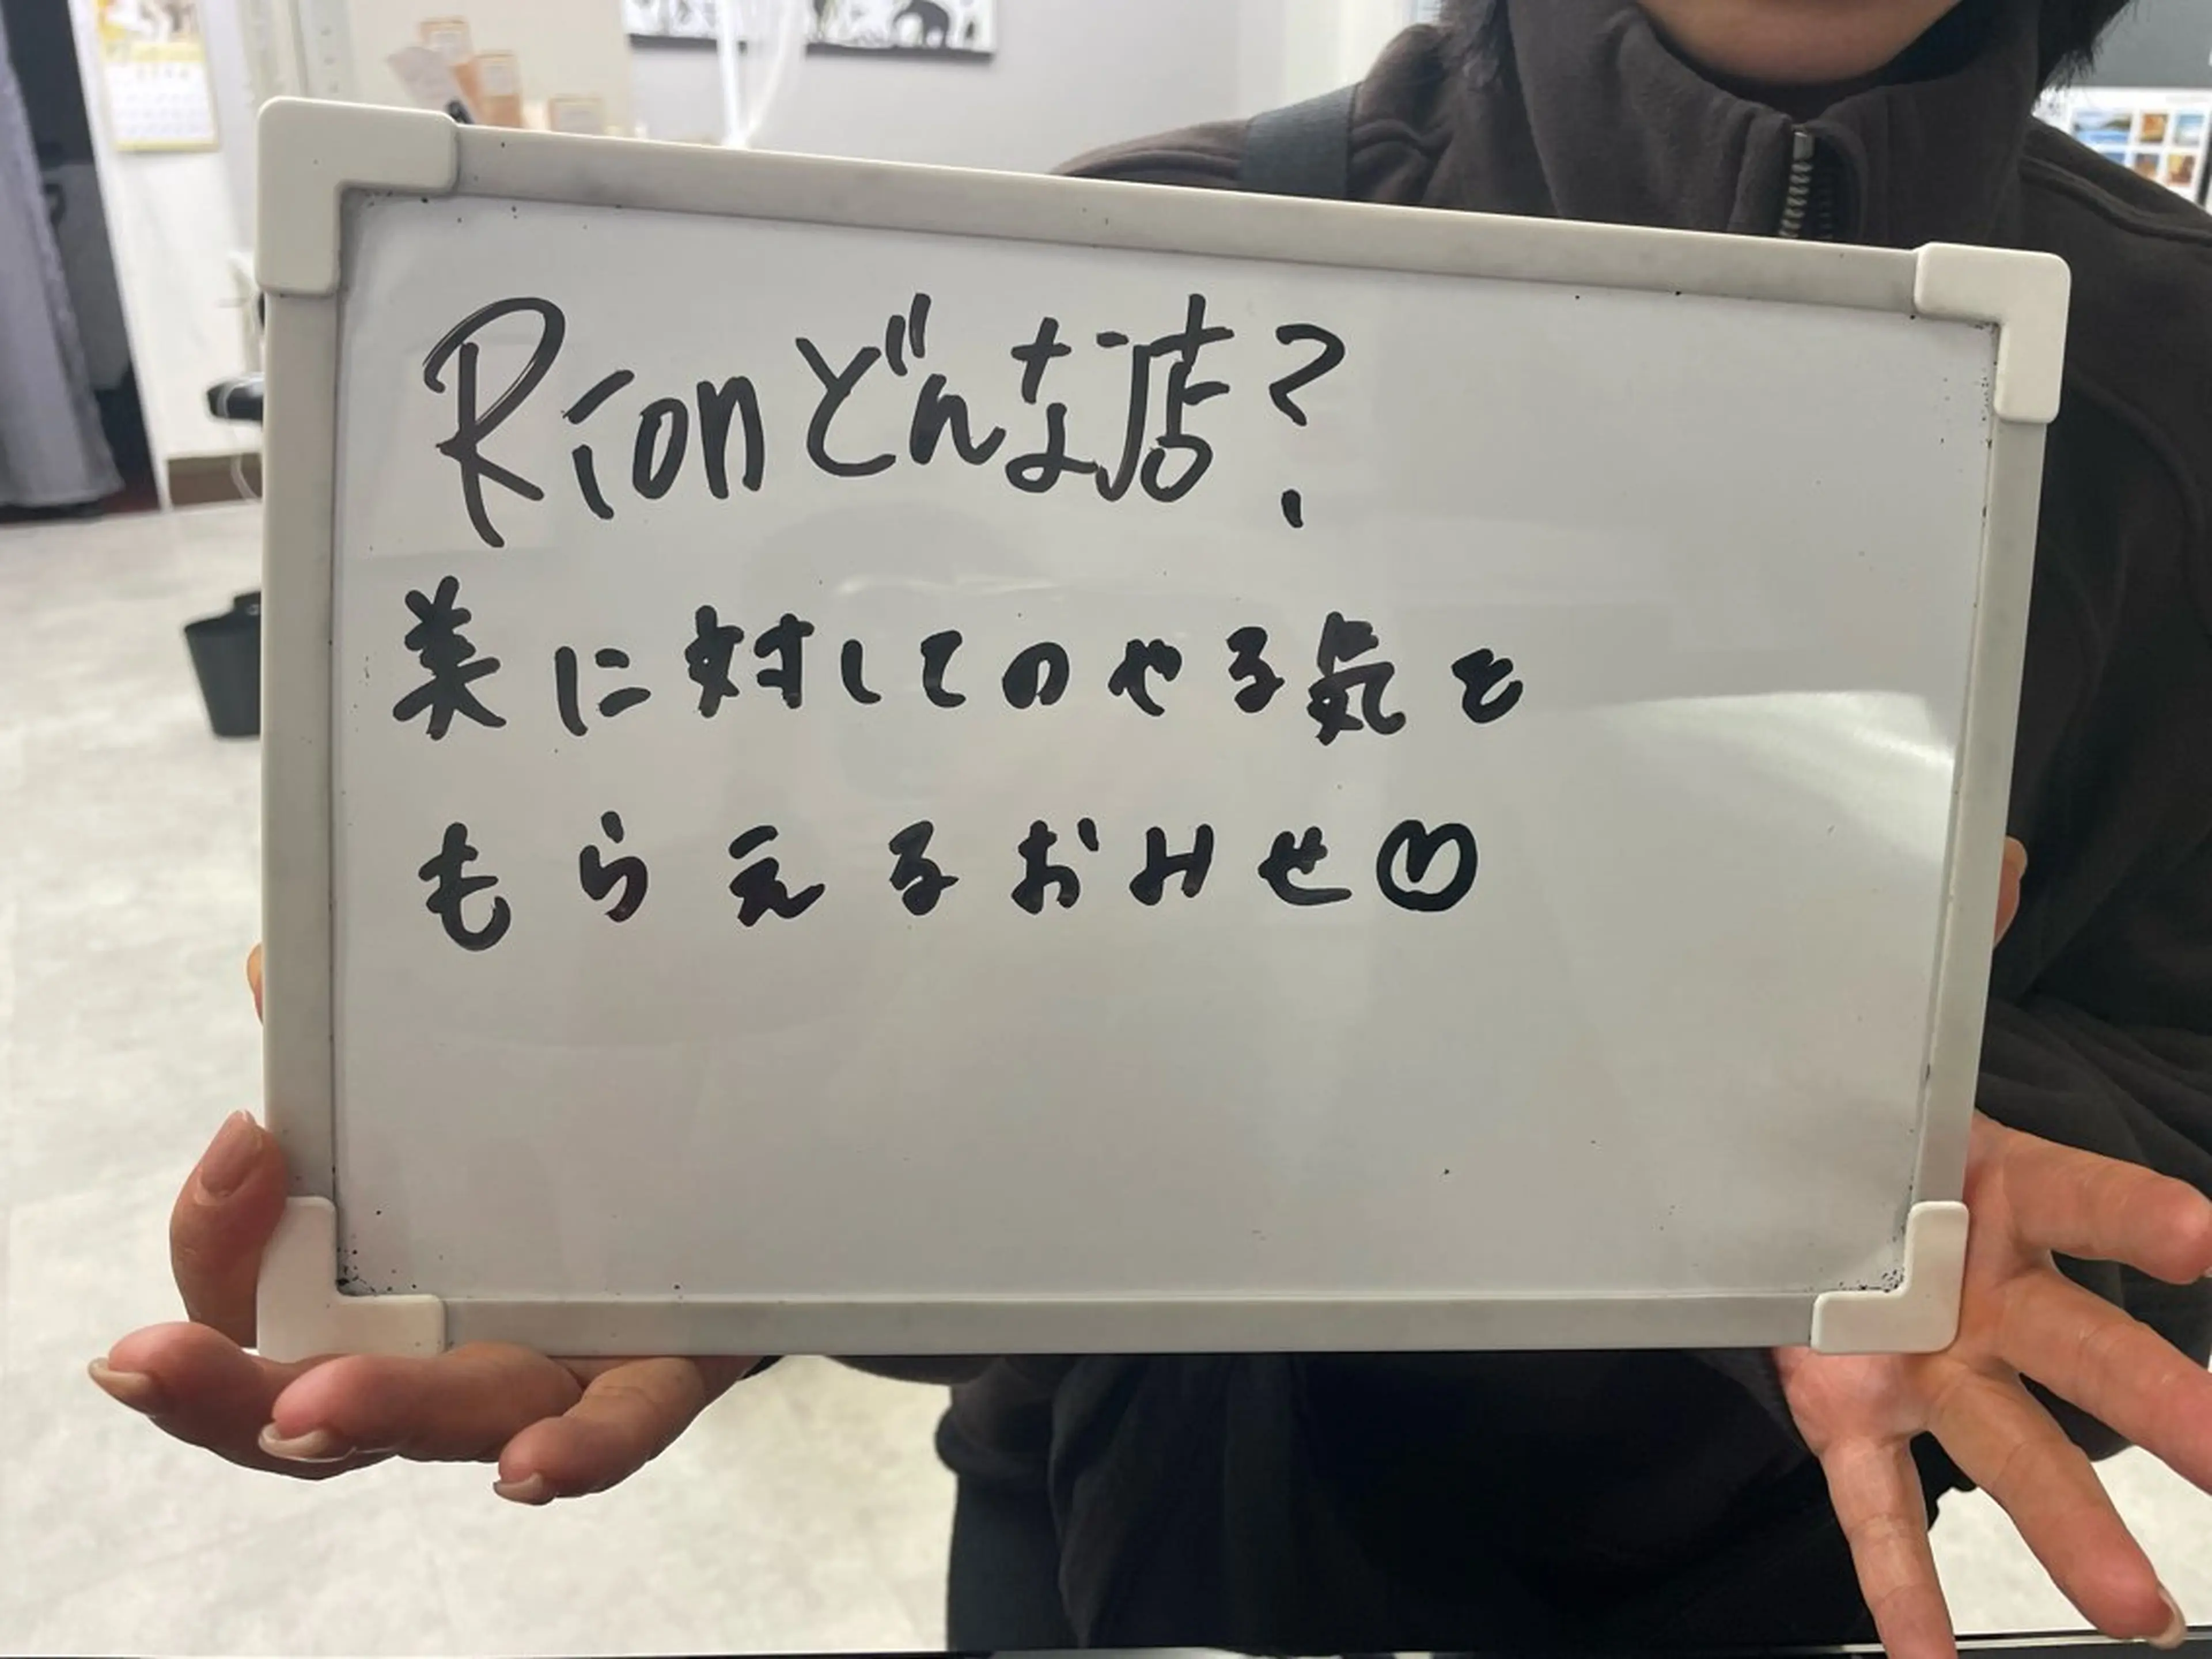 Rionどんな店?
美に対してのやる気を
もらえるおみせ